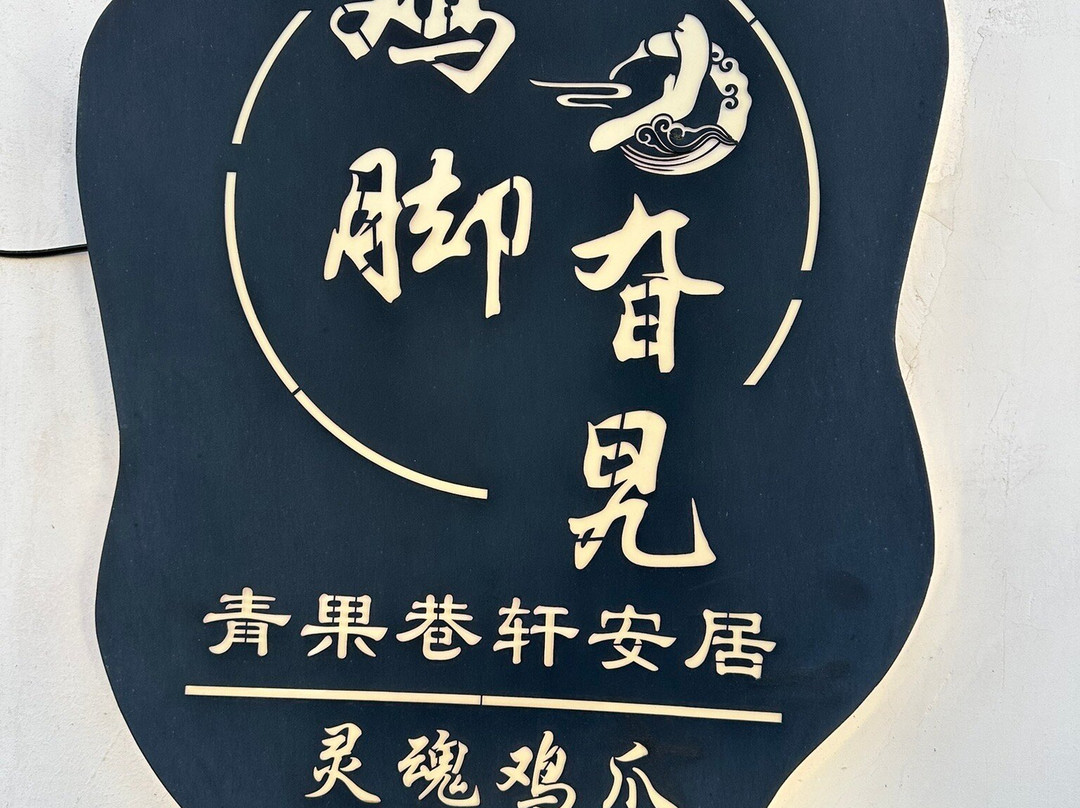 旮旯
鸡脚
青果巷轩安居
灵魂鸡爪